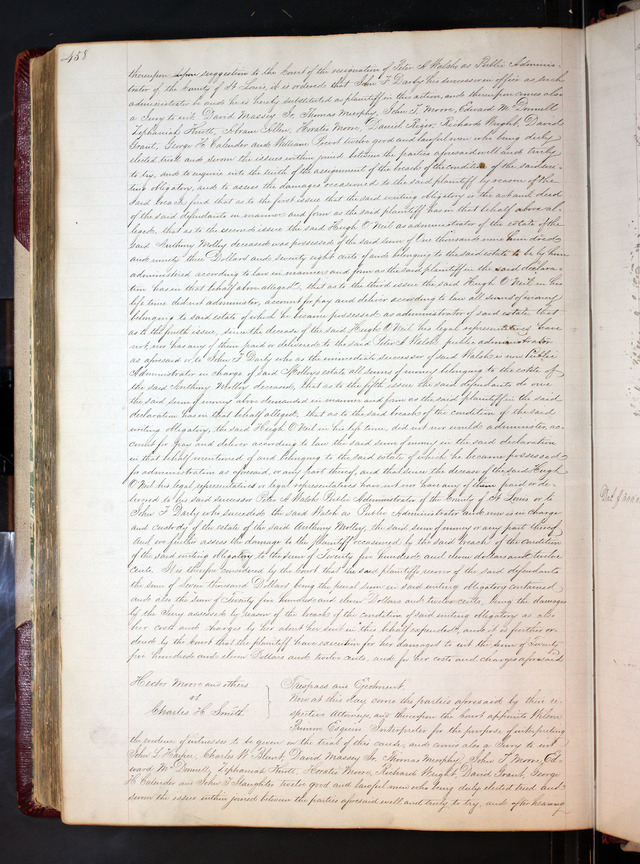 458
thereupon upon suggestion to the Court of the resignation of Peter A Walsh, as Public Adminis-
trator of the County of St Louis, it is ordered that John F Darby, his successor in office as such
administrator be and he is hereby substituted as plaintiff in the action, and thereupon comes also
a Jury to wit David Massey Sr, Thomas Murphy, John T Moore, Edward Mc Donnell
Zephaniah Knott, Abram Allen, Horatio Moore, Daniel Rizer, Richard Wright, David
Grant, George H Callender and William Privet twelve good and lawful men who being duly
elected tried and sworn the issues within joined between the parties aforesaid well and truly
to try, and to enquire into the truth of the assignment of the breach of the condition of the said wri-
ting obligatory, and to assess the damages occasioned to the said plaintiff by reason of the
said breach find that as to the first issue that the said writing obligatory is the act and deed
of the said defendants in manner and form as the said plaintiff has in that behalf above al-
leged, that as to the second issue the said Hugh O'Neil as administrator of the estate of the
said Anthony Molloy deceased was possessed of the said sum of One thousand nine hundred
and ninety three Dollars and seventy eight cents of and belonging to the said estate to be by him
administered according to law in manner and form as the said plaintiff in the said declara-
tion has in that behalf above alleged, that as to the third issue the said Hugh O Neil in his
life time did not administer, account for pay and deliver according to law all sums of money
belonging to said estate of which he became possessed as administrator of said estate that
as to the fourth issue, since the decease of the said Hugh O Neil his legal representatives have
not, nor has any of them paid or delivered to the said Peter A Walsh public administrator
as aforesaid or to John F Darby who as the immediate successor of said Walsh is now Public
Administrator in charge of said Molloy's estate all sums of money belonging to the estate of
the said Anthony Molloy deceased, that as to the fifth issue the said defendants do owe
the said sum of money above demanded in manner and form as the said plaintiff in the said
declaration has in that behalf alleged, that as to the said breach of the condition of the said
writing obligatory, the said Hugh O Neil in his life time, did not nor would administer, ac-
count for pay and deliver according to law the said sum of money in the said declaration
in that behalf mentioned of and belonging to the said estate of which he became possessed
for administration as aforesaid, or any part thereof, and that since the decease of the said Hugh
O'Neil his legal representatives or legal representatives have not nor have any of them paid or de-
livered to the said successor Peter A Walsh Public Administrator of the County of St Louis or to
John F Darby who succeeded the said Walsh as Public Administrator and now is in charge
and custody of the estate of the said Anthony Molloy, the said sum of money or any part thereof
And we further assess the damage to the plaintiff occasioned by the said breach of the condition
of the said writing obligatory to the sum of Twenty five hundred and eleven dollars and twelve
cents. It is therefore considered by the Court that the said plaintiff recover of the said defendants
the sum of Seven thousand Dollars being the penal sum in said writing obligatory contained
and also the sum of Twenty five hundred and eleven Dollars and twelve cents, being the damages
by the Jury assessed by reason of the breach of the condition of said writing obligatory as also
her costs and charges by her about her suit in this behalf expended, and it is further or-
dered by the Court that the plaintiff have execution for her damages to wit the sum of Twenty
five hundred and eleven Dollars and twelve cents, and for her costs and charges aforesaid
Hector Moore and others
vs
Charles H Smith
Trespass and Ejectment.
Now at this day come the parties aforesaid by their re-
spective Attorneys, and thereupon the Court appoints Wilson
Primm Esquire Interpreter for the purpose of interpreting
the evidence of witnesses to be given on the trial of this cause, and comes also a Jury to wit
John S Harper, Charles W Blunt, David Massey Sr, Thomas Murphy, John T Moore, Ed-
ward Mc Donnell, Zephaniah Knott, Horatio Moore, Richard Wright, David Grant, George
H Callender and John D Slaughter twelve good and lawful men who being duly elected tried and
sworn the issues within joined between the parties aforesaid well and truly to try, and after hearing